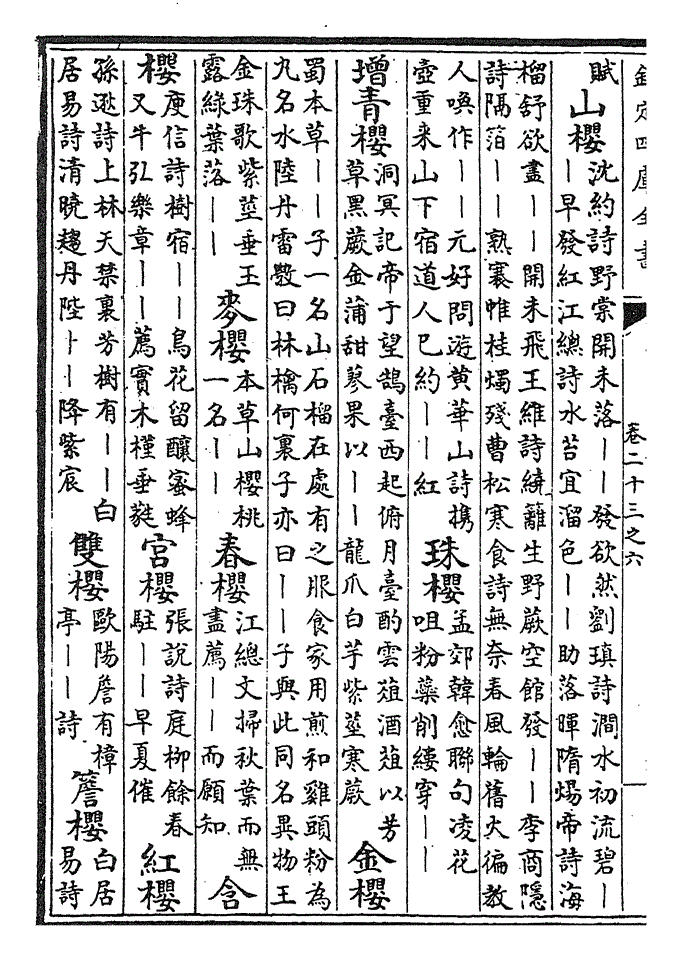 欽定四庫全書
卷二十三之六
賦
山櫻
沈約詩野棠開未落｜｜發欲然劉瑱詩澗水初流碧｜
｜早發紅江總詩水苔宜溜色｜｜助落暉隋煬帝詩海
榴舒欲盡｜｜開未飛王維詩繞籬生野蕨空館發｜｜李商隱
詩隔箔｜｜熟褰帷桂燭殘曹松寒食詩無奈春風輪舊火徧教
人喚作｜｜元好問遊黃華山詩攜
壺重來山下宿道人已約｜｜紅
珠櫻
孟郊韓愈聯句凌花
咀粉蘂削縷穿｜｜
增青櫻
洞冥記帝于望鵠臺西起俯月臺酌雲葅酒葅以芳
草黑蕨金蒲甜蓼果以｜｜龍爪白芋紫莖寒蕨
金櫻
蜀本草｜｜子一名山石榴在處有之服食家用煎和雞頭粉為
丸名水陸丹雷斆曰林檎何裏子亦曰｜｜子與此同名異物王
金珠歌紫莖垂玉
露綠葉落｜｜
麥櫻
本草山櫻桃
一名｜｜
春櫻
江總文掃秋葉而無
盡薦｜｜而願知
含
櫻
庾信詩樹宿｜｜鳥花留釀蜜蜂
又牛弘樂章｜｜薦實木槿垂蕤
宮櫻
張說詩庭柳餘春
駐｜｜早夏催
紅櫻
孫逖詩上林天禁裏芳樹有｜｜白
居易詩清曉趨丹陛｜｜降紫宸
雙櫻
歐陽詹有樟
亭｜｜詩
簷櫻
白居
易詩